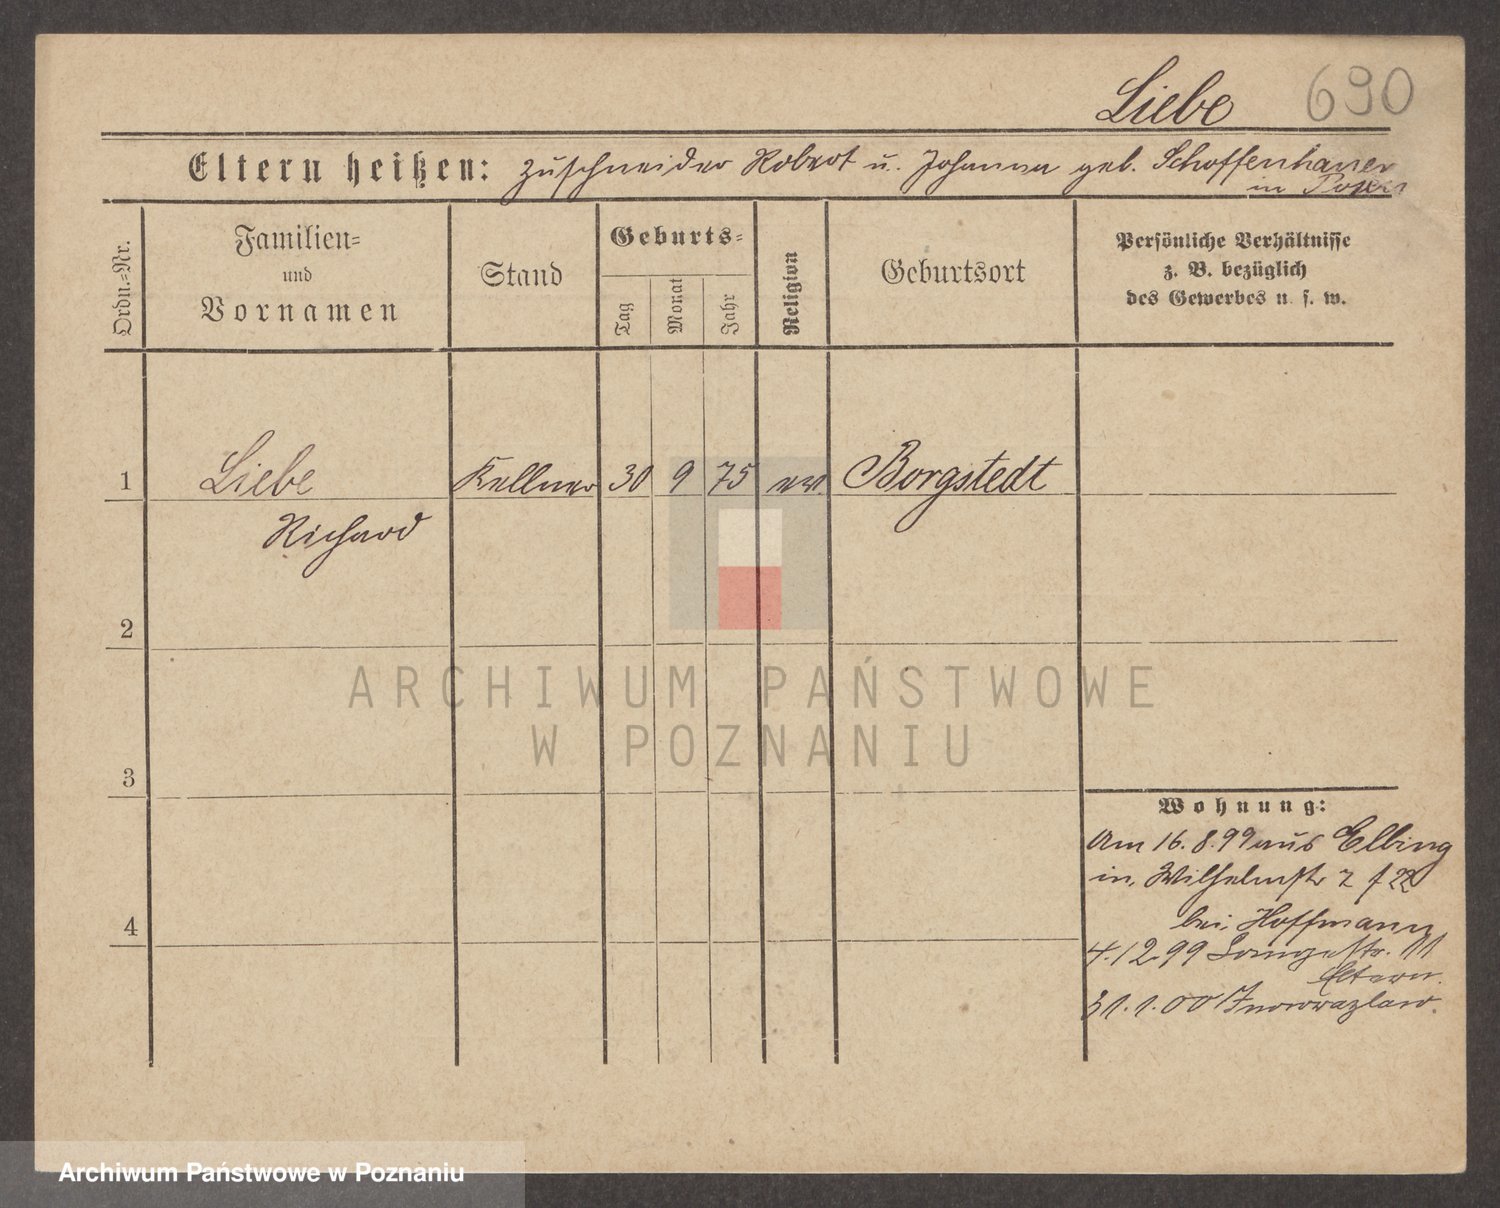 Liebe 690
Eltern heißen: Zuschneider Robert u. Johanna geb. Schoffenhauer
in Posen
Ordn.=Nr.
Familien=
und
Vornamen
Stand
Geburts=
Tag
Monat
Jahr
Religion
Geburtsort
Persönliche Verhältnisse
z. B. bezüglich
des Gewerbes u. s. w.
1 Liebe Kellner 30 9 75 ev. Borgstedt
Richard
2
3
4
ARCHIWUM PAŃSTWOWE
W POZNANIU
Wohnung:
Am 16.8.99 aus Elbing
in Wilhelmstr
bei Hoffmann
4.12.99 Langestr. 11
Eltern.
31.1.00 Inowrazlaw.
Archiwum Państwowe w Poznaniu